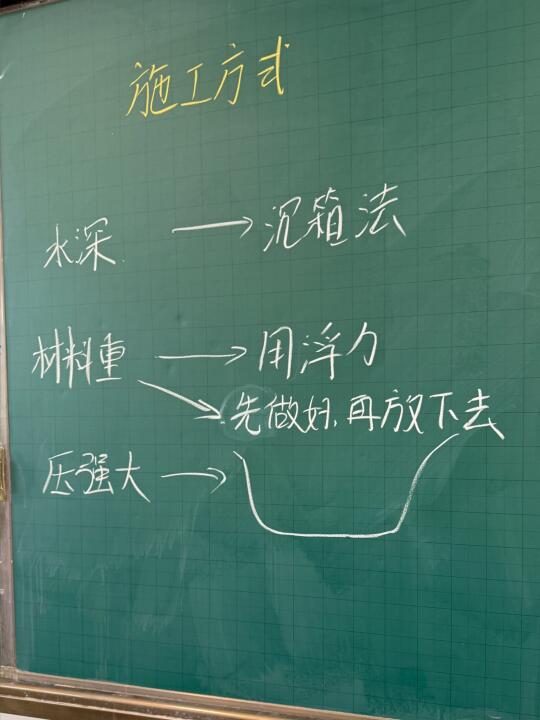 施工方式
水深 → 沉箱法
材料重 → 用浮力
→ 先做好,再放下去
压强大 →